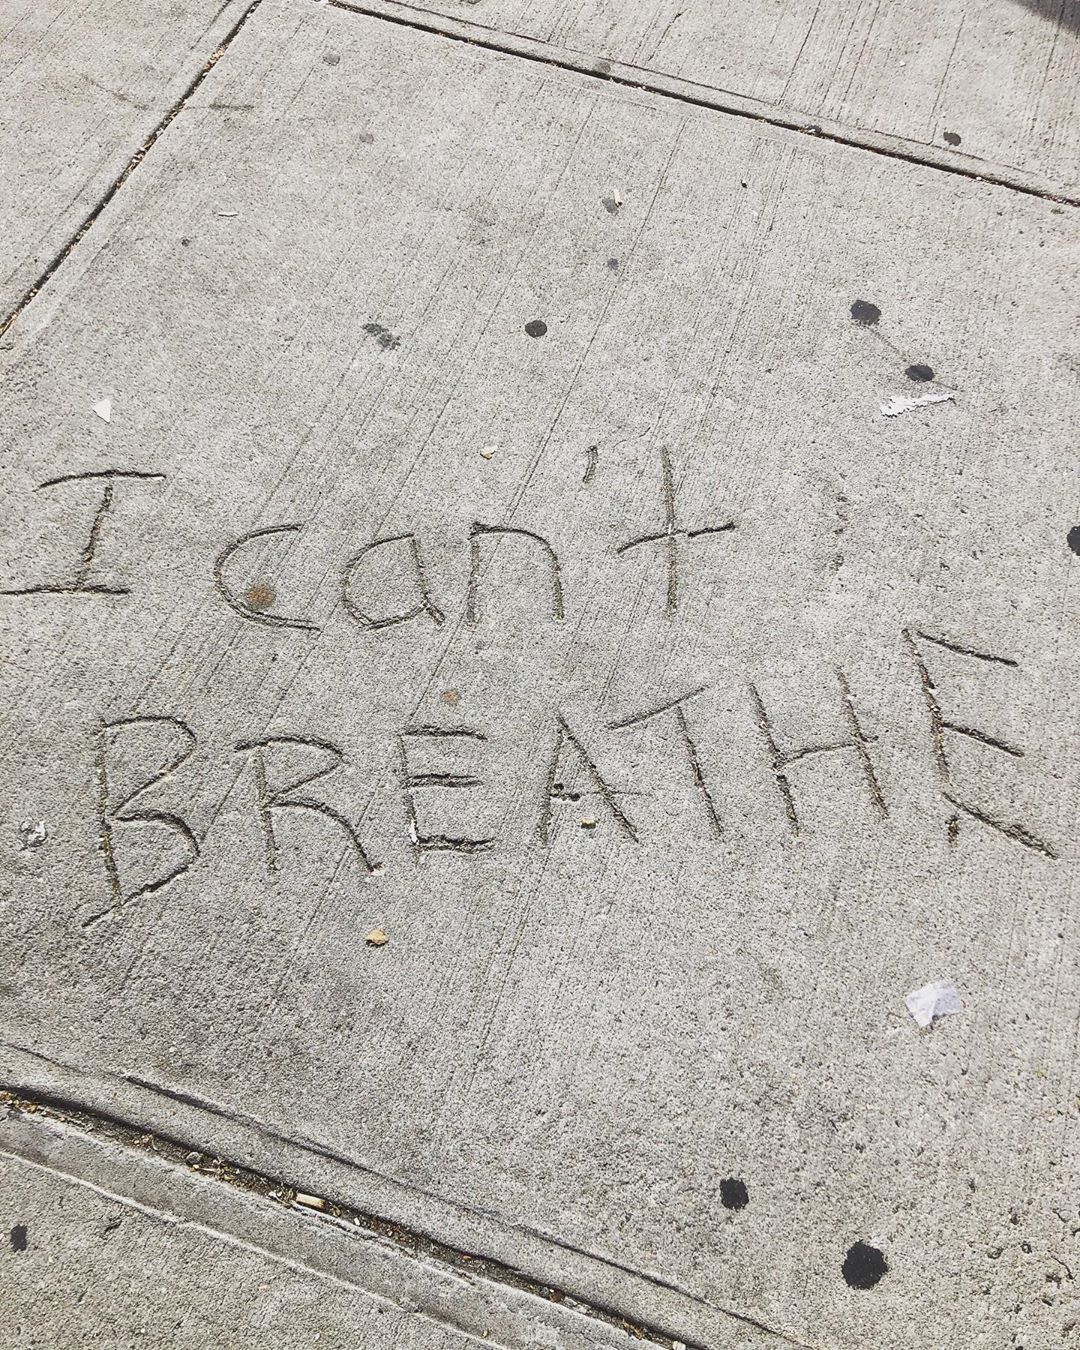 I can't
BREATHE